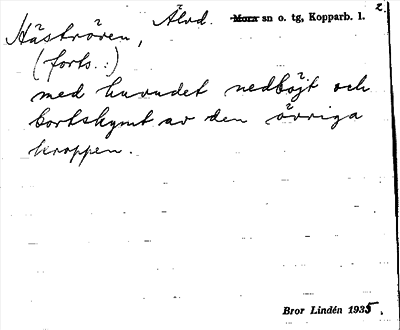 Häströven, Älvd. Mora sn o. tg, Kopparb. l. 2.
(forts.:)
med huvudet nedböjt och
bortskymt av den övriga
kroppen.
Bror Lindén 1935.